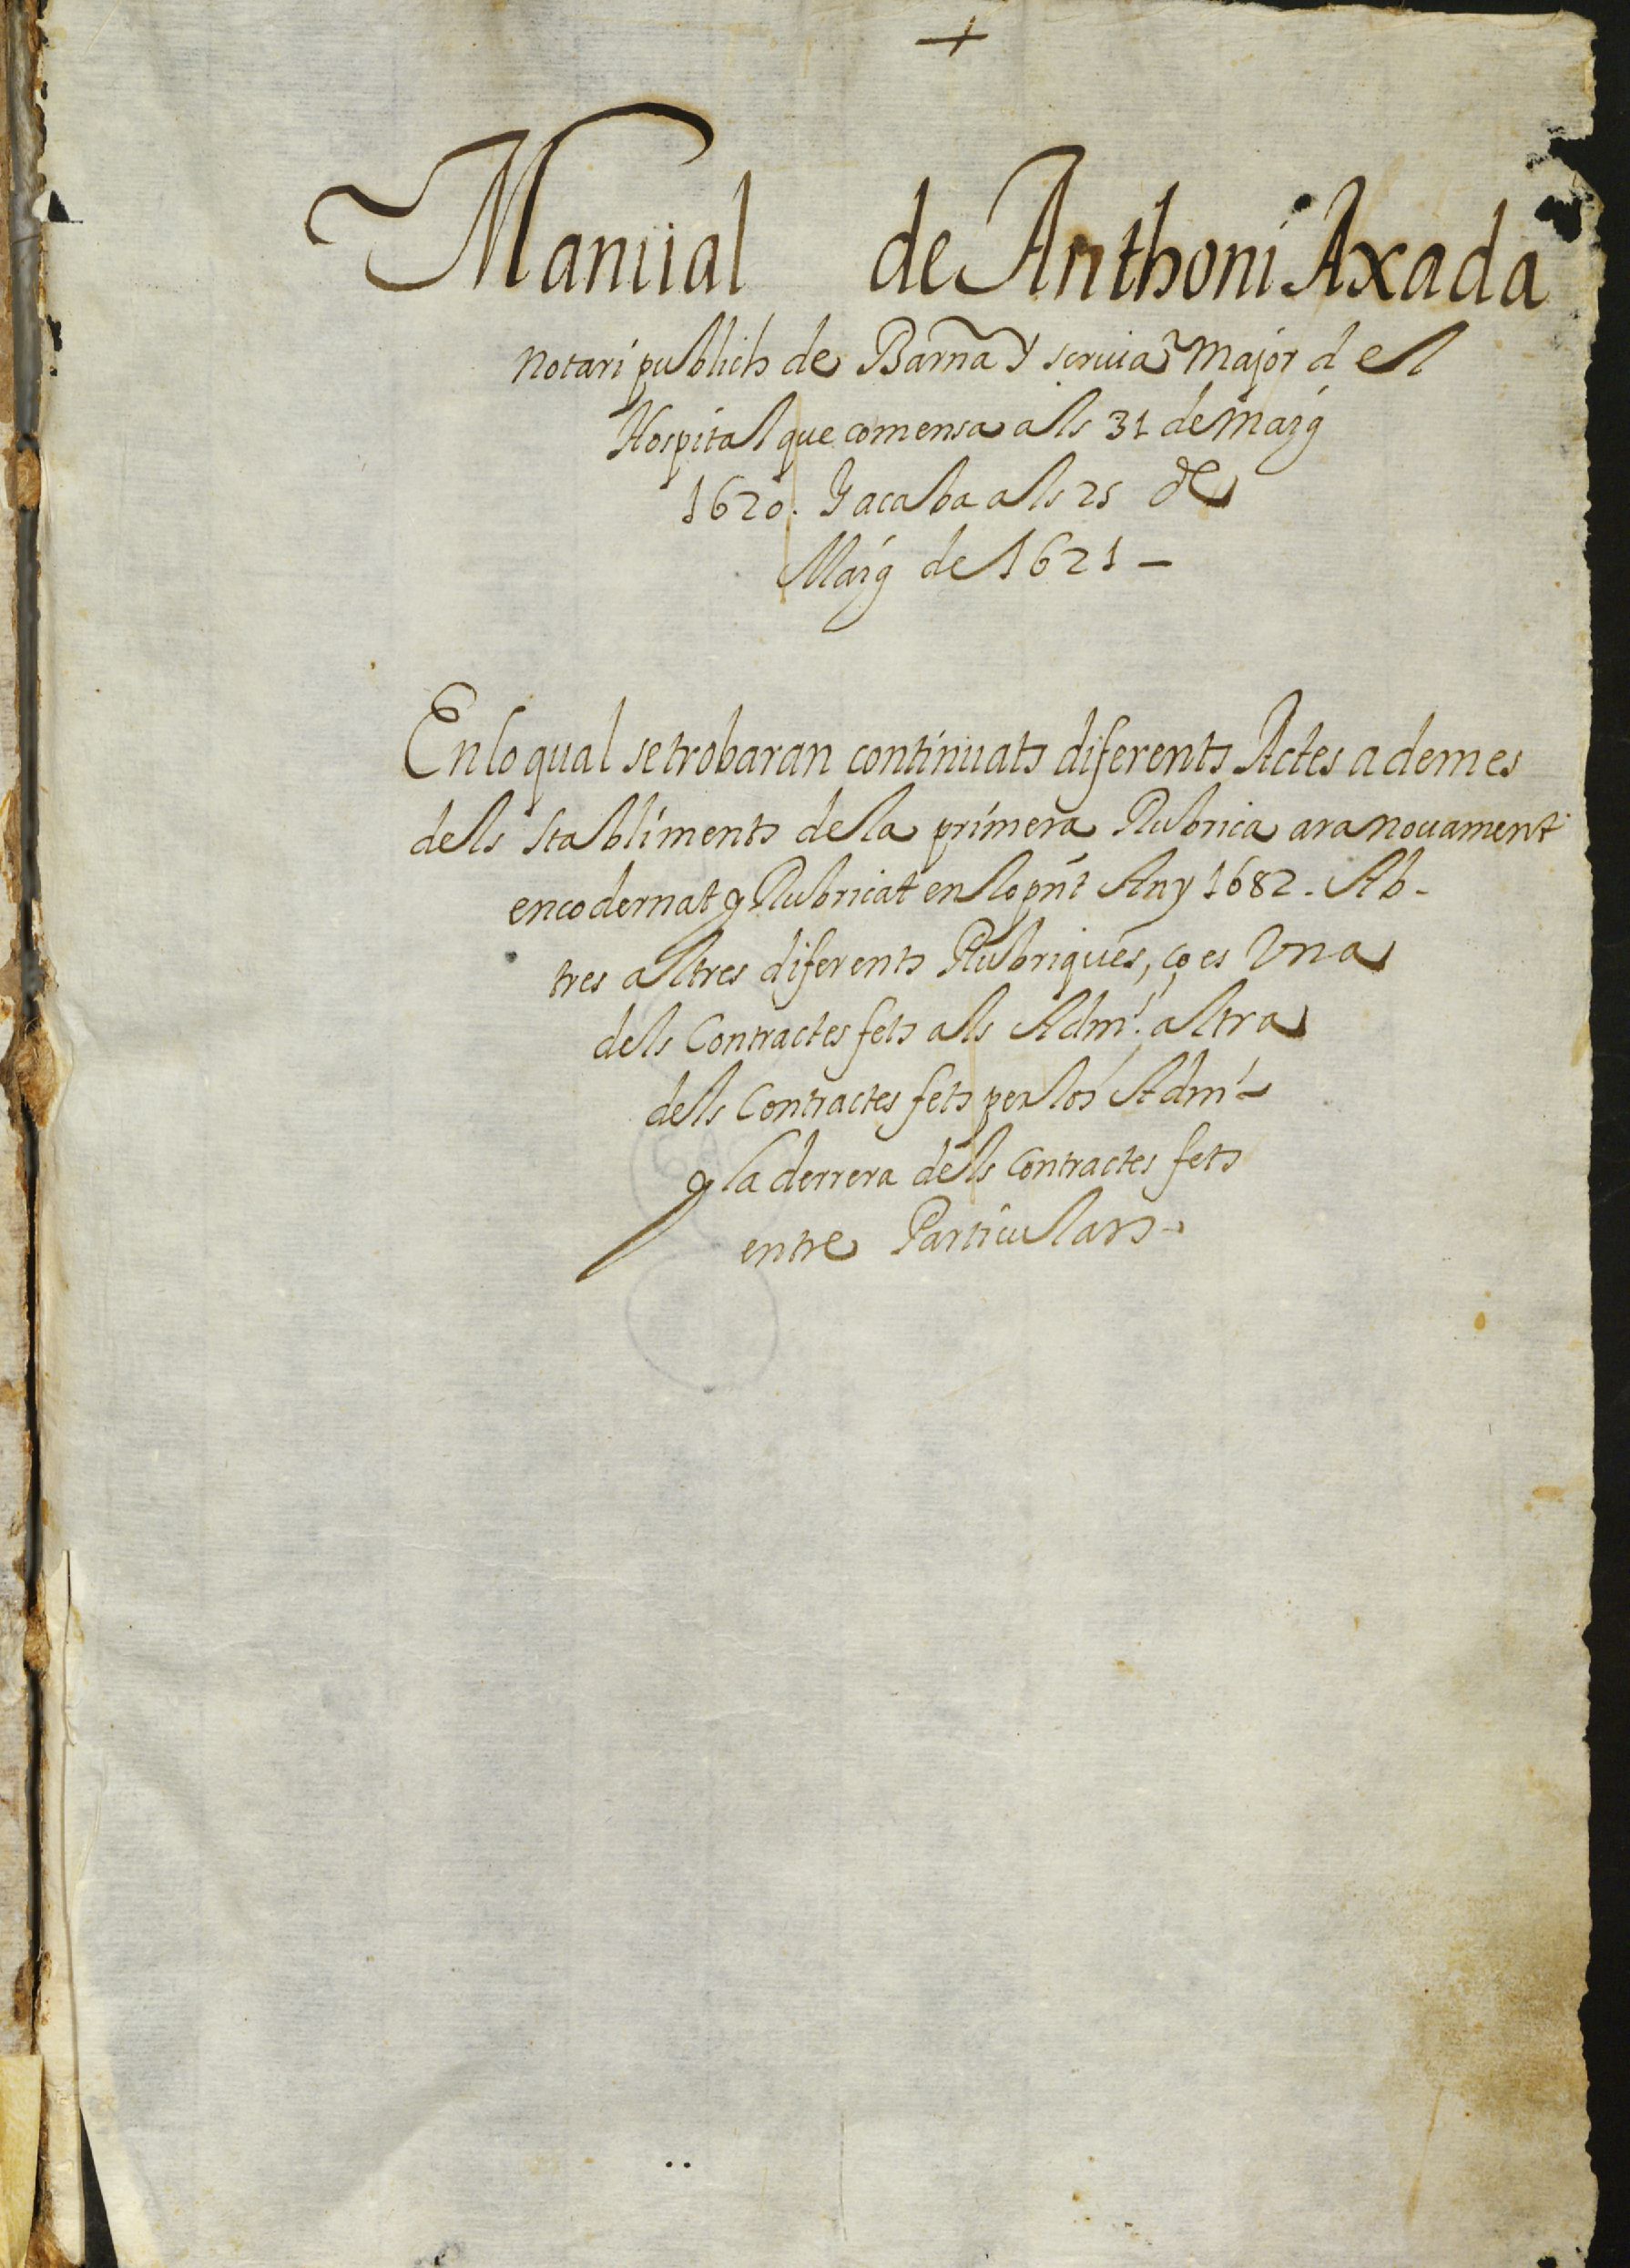 +
Manual de Anthoni Axada
notari publich de Barna Y scriua Major del
Hospital que comensa als 31 de Maig
1620. Y acaba als 25 de
Maig de 1621 -
En lo qual se trobaran continuats diferents Actes a demes
dels stabliments de la primera Rubrica ara nouament
encodernat y Rubricat en lo pnt Any 1682. Ab-
tres altres diferents Rubriques, ço es Vna
dels Contractes fets als Adm.rs altra
dels Contractes fets per los Adm.rs
y la derrera dels Contractes fets
entre Particulars-